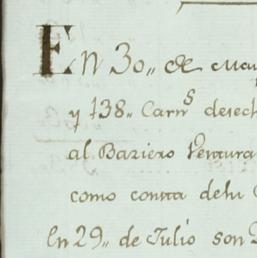 En 30,, de
y 138,, Carn.s desech
al Baziero Ventura
como consta delu
En 29,, de Julio son